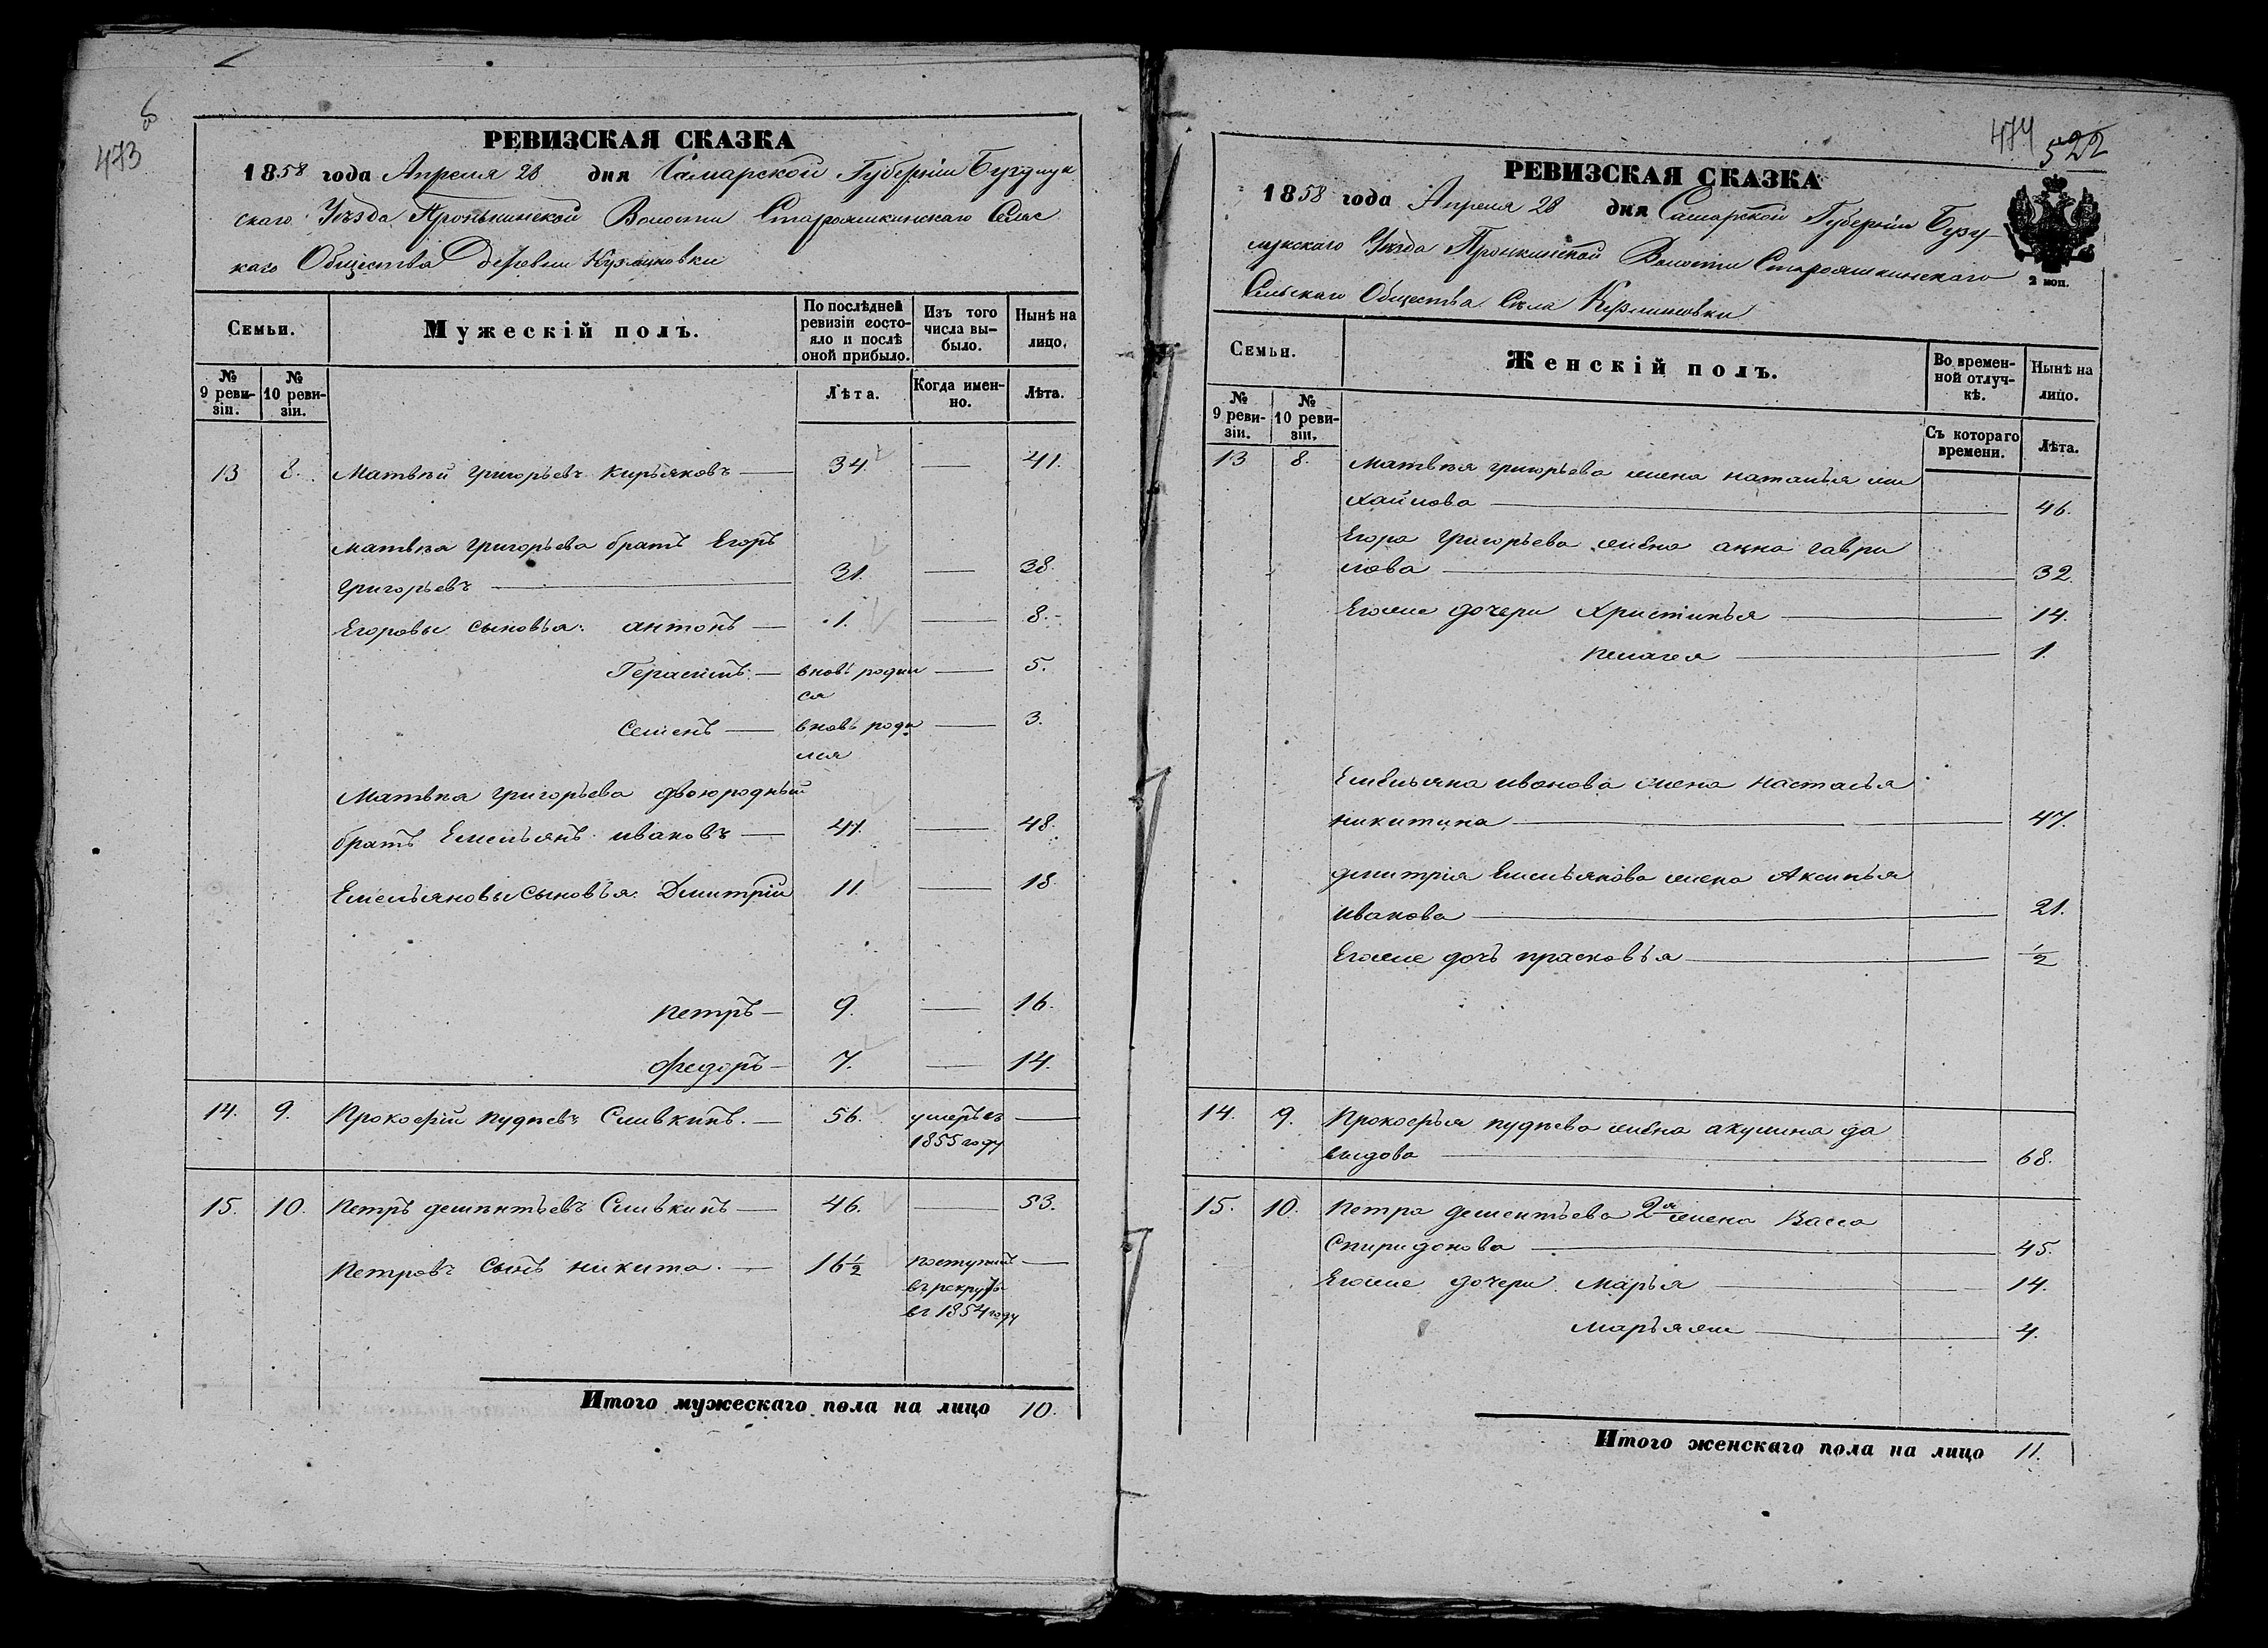 6
473
РЕВИЗСКАЯ СКАЗКА
1858 года Апреля 28 дня Самарской Губерніи Бузулук
скаго Уѣзда Пронькинской Волости Староашкинскаго Сельс
каго Общества деревни Кузминовки
Семьи.
Мужескій полъ.
По послѣдней ревизіи состояло и послѣ оной прибыло.
Изъ того числа выбыло.
Нынѣ на лицо.
№ 9 ревизіи.
№ 10 ревизіи.
Лѣта.
Когда именно.
Лѣта.
13 8. Матвѣй григорьевъ Кирьяковъ — 34. — 41.
Матвѣя григорьева братъ Егоръ
григорьевъ — 31. — 38.
Егоровы сыновья: антонъ — 1. — 8.
Герасимъ — вновь родил — 5.
ся
Семенъ — вновь роди — 3.
лся
Матвѣя григорьева двоюродный
братъ Емельянъ ивановъ — 41. — 48.
Емельяновы сыновья. Дмитрій 11. — 18.
петръ — 9. — 16.
федоръ — 7. — 14.
14. 9. Прокофій пудѣевъ Сливкинъ. — 56. умеръ въ —
1855 году
15. 10. Петръ дементьевъ Сливкинъ — 46. — 53.
Петровъ сынъ никита. — 16 1/2 поступилъ —
въ рекруты
въ 1854 году
Итого мужескаго пола на лицо 10.
474 522
РЕВИЗСКАЯ СКАЗКА
1858 года Апреля 28 дня Самарской Губерніи Бузу
лукскаго Уѣзда Пронкинской Волости Староашкинскаго
Сельскаго Общества Села
2 коп.
Семьи.
Женскій полъ.
Во временной отлучкѣ.
Нынѣ на лицо.
№ 9 ревизіи.
№ 10 ревизіи.
Съ котораго времени.
Лѣта.
13 8. Матвѣя григорьева жена наталья ми
хайлова — 46.
Егора григорьева жена анна гаври
лова — 32.
Егоже дочери Христинья — 14.
пелагея — 1.
Емельяна иванова жена настасья
никитина — 47.
дмитрія Емельянова жена Аксинья
иванова — 21.
Егоже дочь прасковья — 1/2
14. 9. Прокофья пудѣева жена акулина да
выдова — 68.
15. 10. Петра дементьева 2я жена Васса
Спиридонова — 45.
Егоже дочери Марья — 14.
— 4.
Итого женскаго пола на лицо 11.